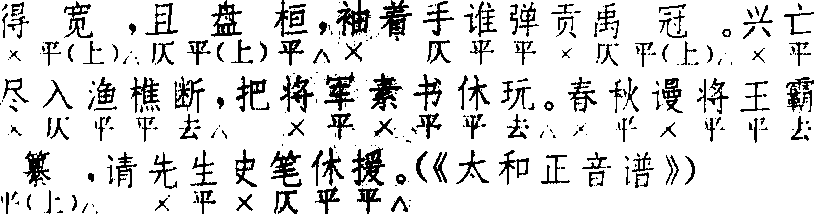 得宽，且盘桓，袖着手谁弹贡禹冠。兴亡
×平(上)△仄平(上)平△×仄平平×仄平(上)△×平
尽入渔樵断，把将军素书休玩。春秋谩将王霸
×仄平平去△×平×平平去△×平×平平去
纂，请先生史笔休援。(《太和正音谱》)
平(上)△×平×仄平平△